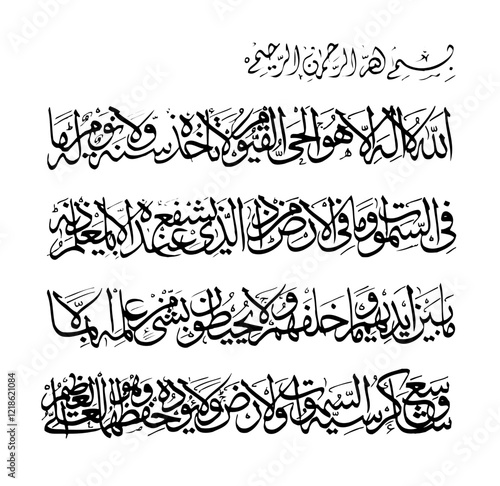 بسم الله الرحمن الرحيم
الله لا اله الا هو الحي القيوم لا تأخذه سنة ولا نوم له ما
في السموات وما في الارض من ذا الذي يشفع عنده الا باذنه يعلم
ما بين ايديهم وما خلفهم ولا يحيطون بشئ من علمه الا بما
شاء وسع كرسيه السموات والارض ولا يوده حفظهما وهو العلي العظيم
Adobe Stock | #1218621084
Adobe Stock